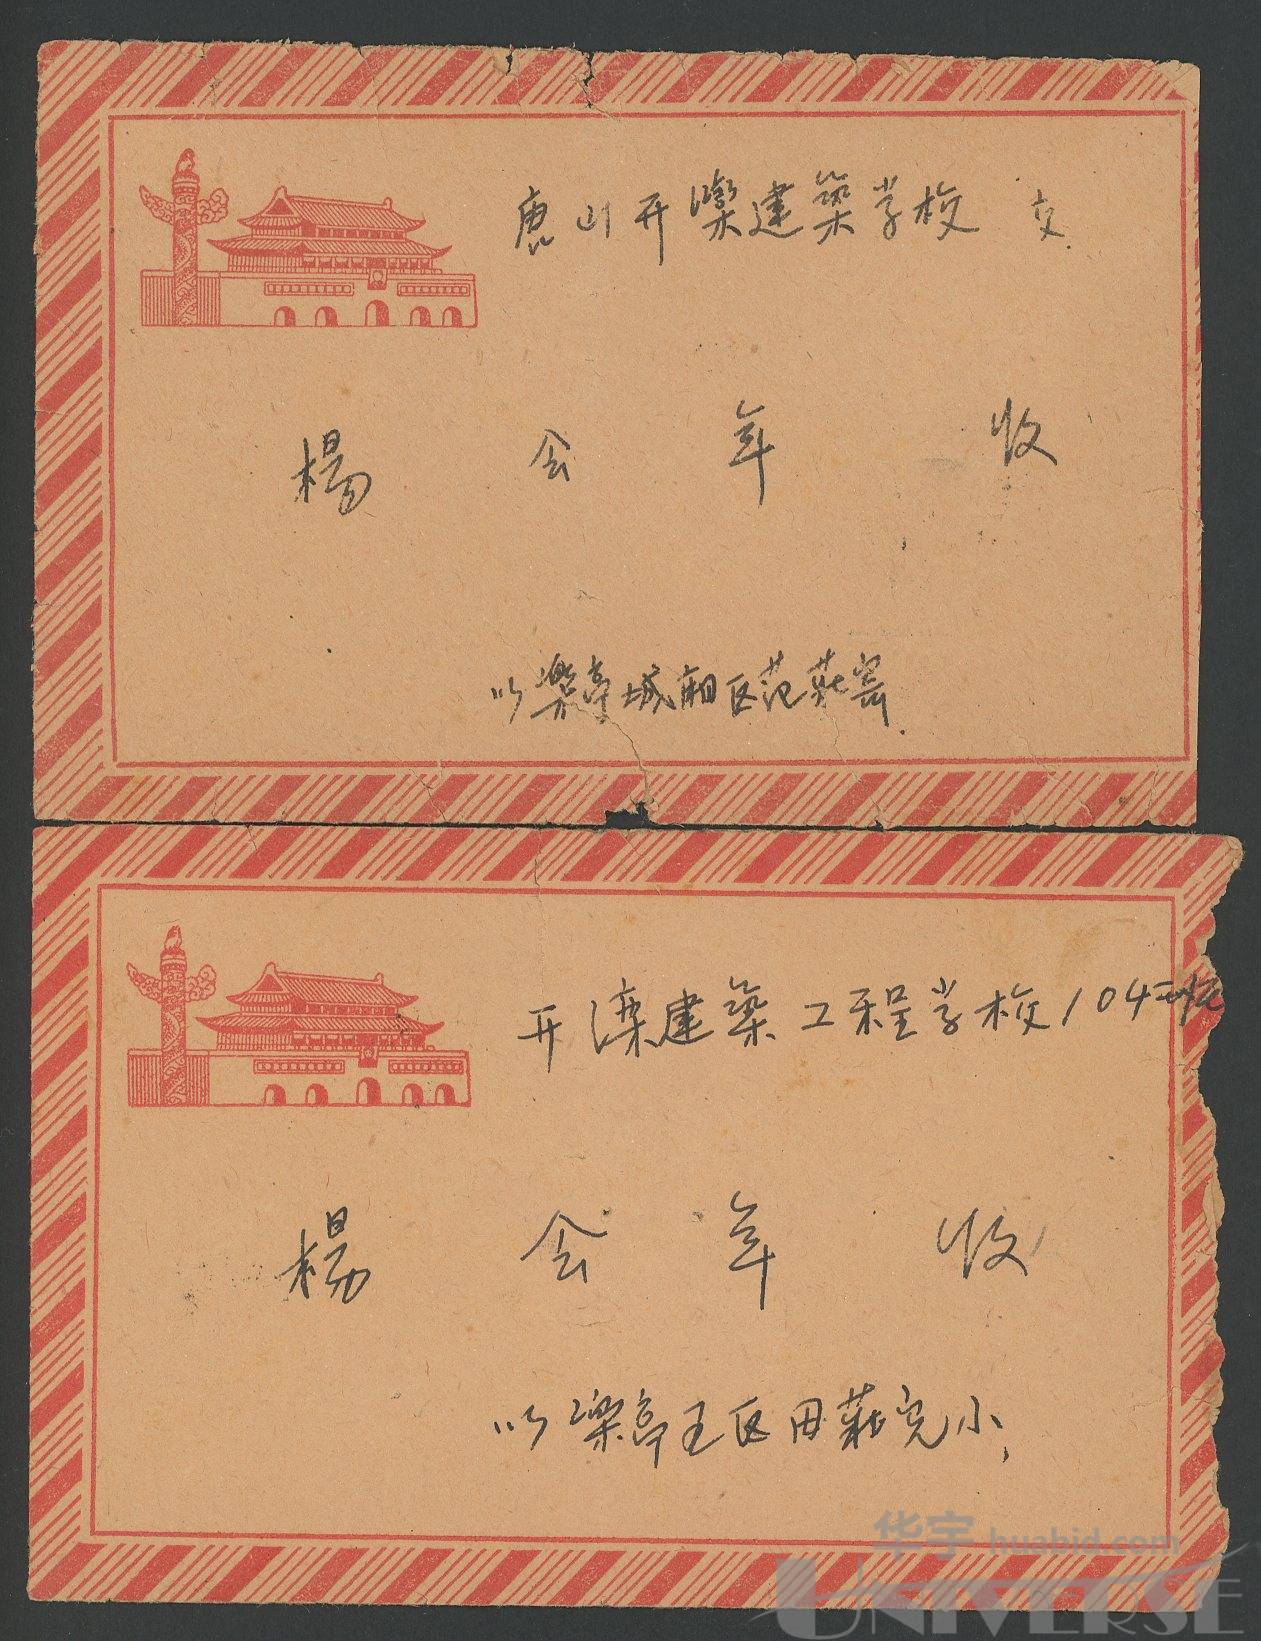 唐山开灤建築学校 交
楊会年 收
以樂亭城廂区范莊窰
开滦建築工程学校104班
楊会年 收
以滦亭王区田莊完小
华宇 huabid.com
UNIVERSE